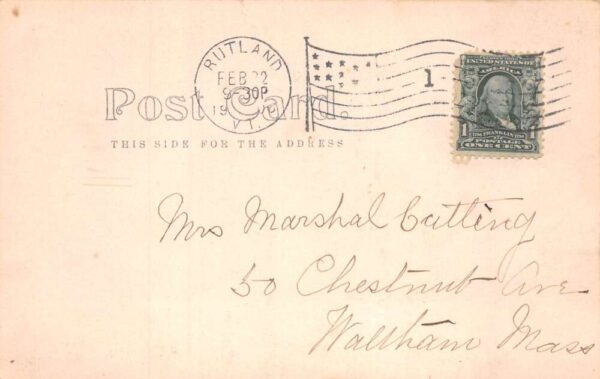 RUTLAND
FEB 22
9-30P
19
VT.
1
UNITED STATES OF
AMERICA
1 FRANKLIN 1
POSTAGE
ONE CENT
Post Card.
THIS SIDE FOR THE ADDRESS
Mrs Marshal Cutting
50 Chestnut Ave
Waltham Mass